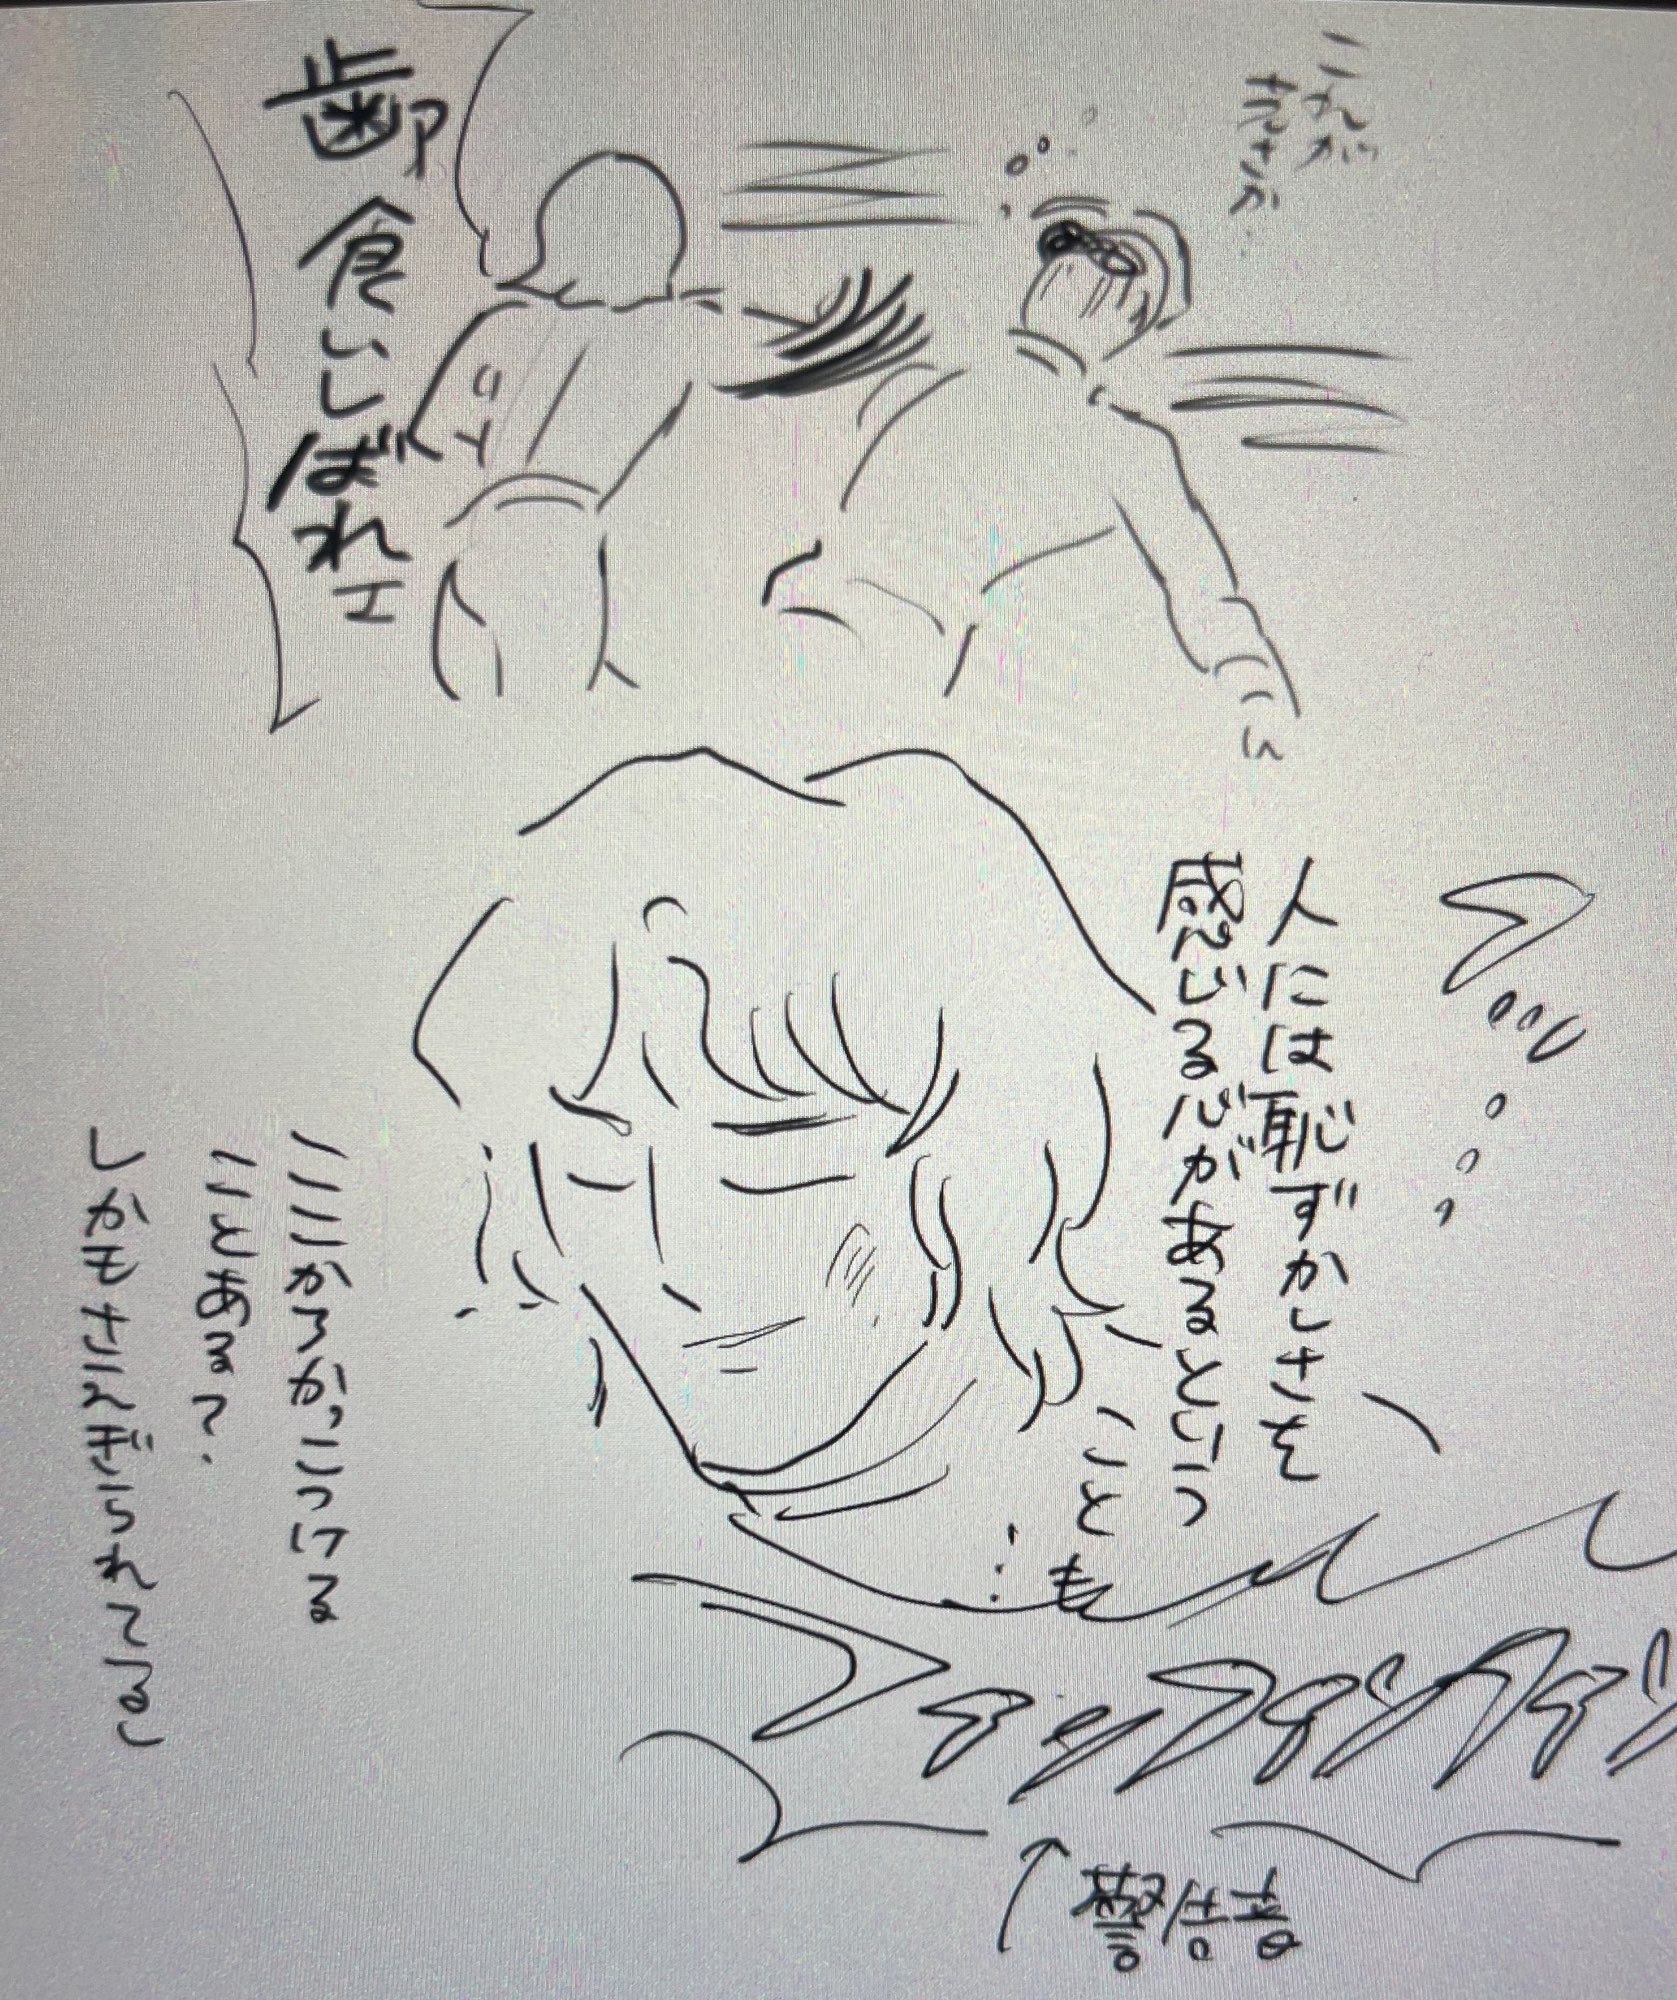 これが
若さか…
歯食いしばれェ
人には恥ずかしさを
感じる心があるという
ことも…
ここからかっこつける
ことある?
しかもさえぎられてるし
ファンファンファン
警告音